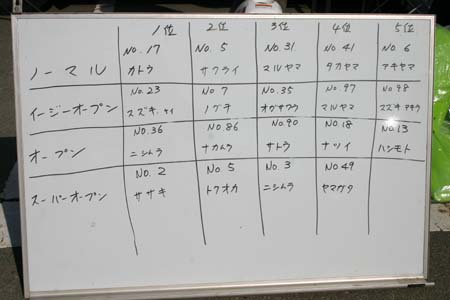 1位 2位 3位 4位 5位
No.17 No.5 No.31 No.41 No.6
ノーマル カトウ サクライ マルヤマ タカヤマ アキヤマ
No.23 No.7 No.35 No.97 No.98
イージーオープン スズキ.ケイ ノグチ オガサワラ マルヤマ スズキ
No.36 No.86 No.90 No.18 No.13
オープン ニシムラ ナカムラ サトウ ナツイ ハシモト
No.2 No.5 No.3 No.49
スーパーオープン ササキ トクオカ ニシムラ ヤマガタ